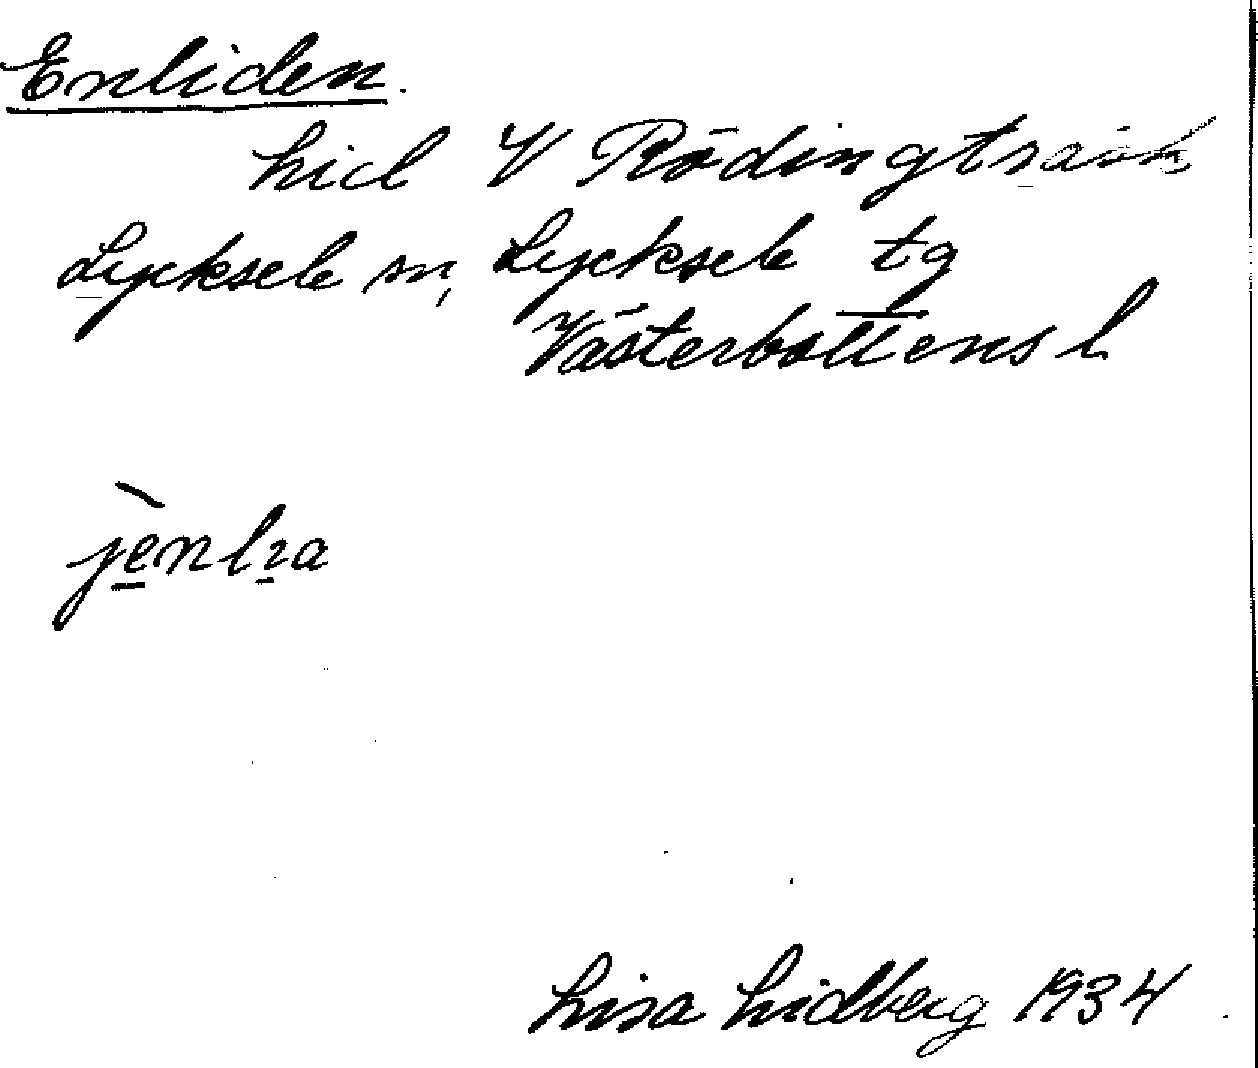 Enliden.
Lid V Rödingträsk,
Lycksele sn, Lycksele tg
Västerbottens l
Lisa Lidberg 1934